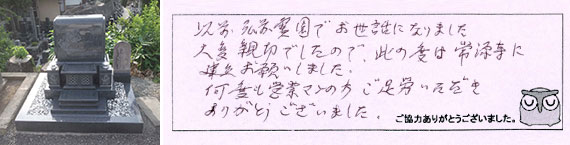 以前 弘前霊園でお世話になりました
大変親切でしたので、此の度は常源寺に
建立お願いしました.
何度も営業マンの方ご足労いただき
ありがとうございました.
ご協力ありがとうございました。